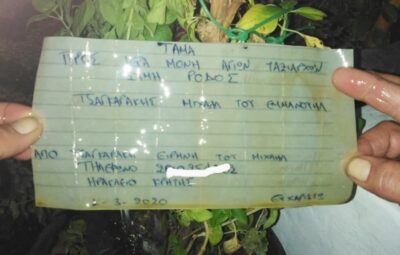 ΤΑΜΑ
ΠΡΟΣ ΙΕΡΑ ΜΟΝΗ ΑΓΙΩΝ ΤΑΞΙΑΡΧΩΝ
ΣΥΜΗ ΡΟΔΟΣ
ΤΣΑΓΚΑΡΑΚΗΣ ΜΙΧΑΗΛ ΤΟΥ ΕΜΜΑΝΟΥΗΛ
ΑΠΟ ΤΣΑΓΚΑΡΑΚΗ ΕΙΡΗΝΗ ΤΟΥ ΜΙΧΑΗΛ
ΤΗΛΕΦΩΝΟ
ΗΡΑΚΛΕΙΟ ΚΡΗΤΗΣ
-3-2020